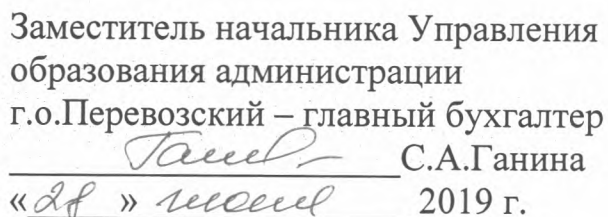 Заместитель начальника Управления
образования администрации
г.о.Перевозский – главный бухгалтер
С.А.Ганина
«28» 2019 г.